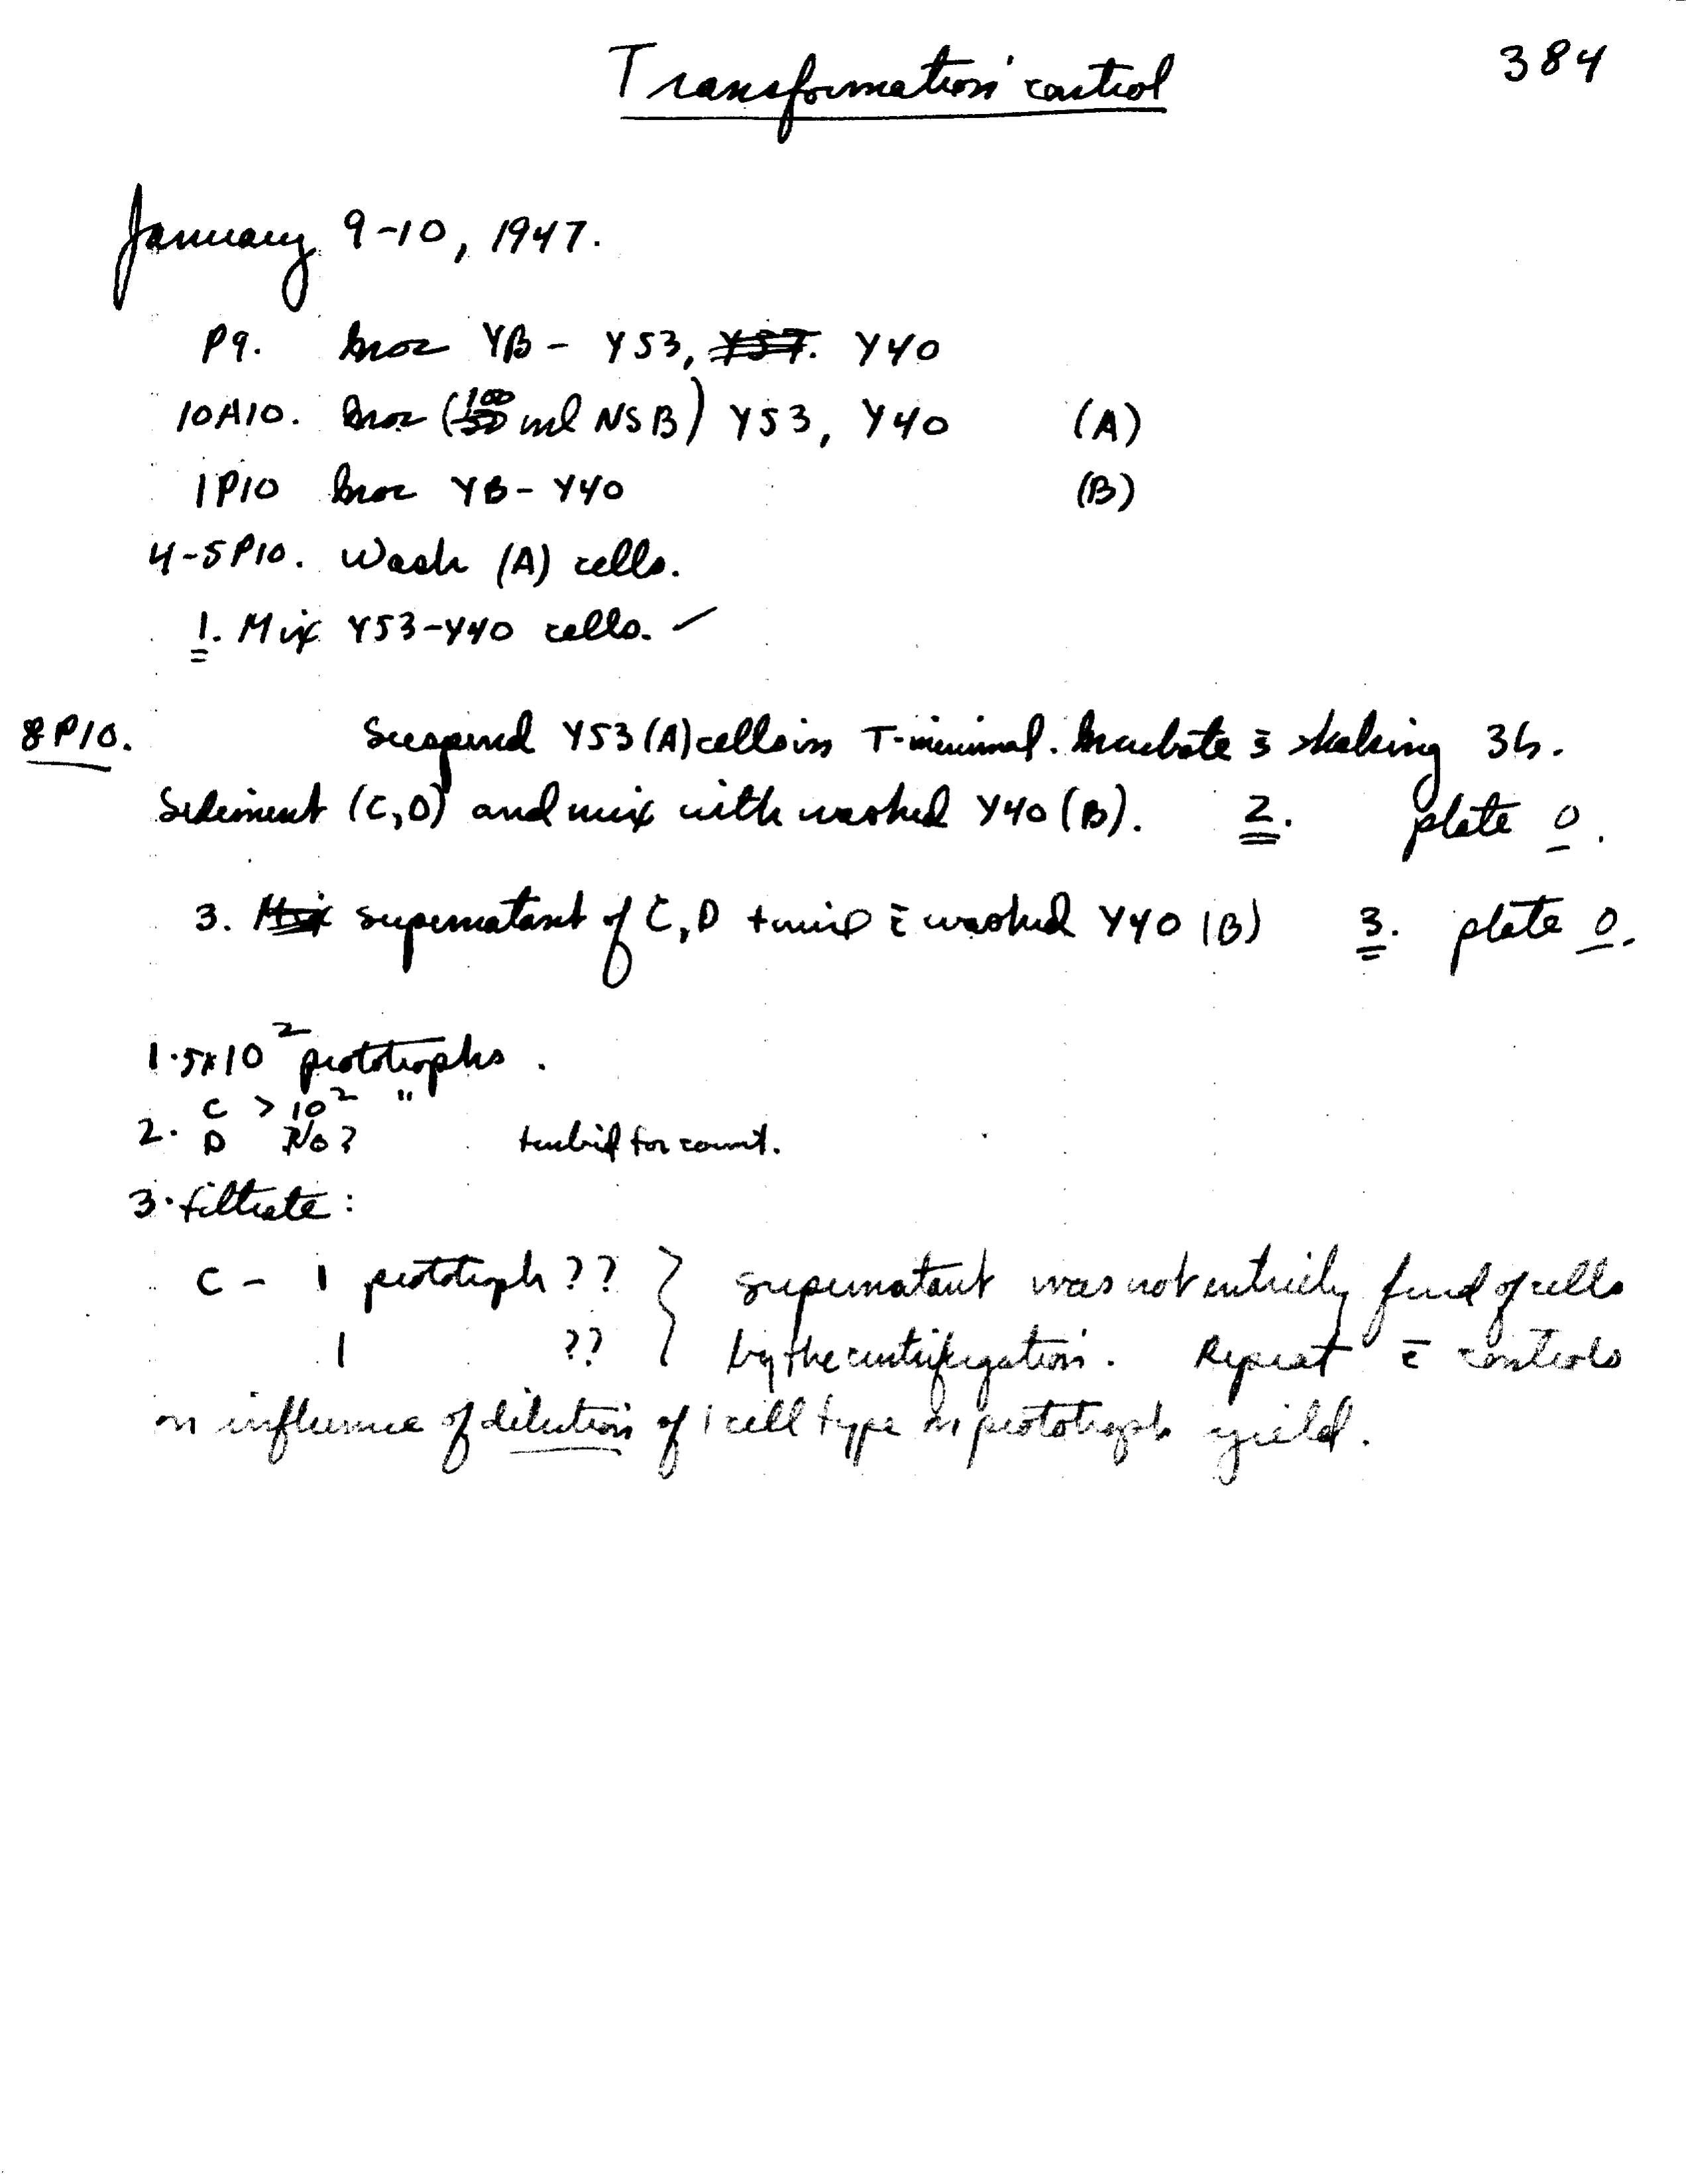 384
Transformation control
January 9-10, 1947.
P9. Inoc YB - Y53, Y40
10A10. Inoc (100 ml NSB) Y53, Y40 (A)
1P10 Inoc YB - Y40 (B)
4-5P10. Wash (A) cells.
1. Mix Y53-Y40 cells. ✓
8P10. Suspend Y53 (A) cells in T-minimal. Incubate c̄ shaking 3h.
Sediment (C,D) and mix with washed Y40 (B). 2. plate 0.
3. supernatant of C, D + mix c̄ washed Y40 (B) 3. plate 0.
1. 5x10² prototrophs.
C > 10² "
2. D No? turbid for count.
3. filtrate:
C - 1 prototroph ?? } supernatant was not entirely freed of cells
1 ?? by the centrifugation. Repeat c̄ controls
on influence of dilution of 1 cell type on prototroph yield.